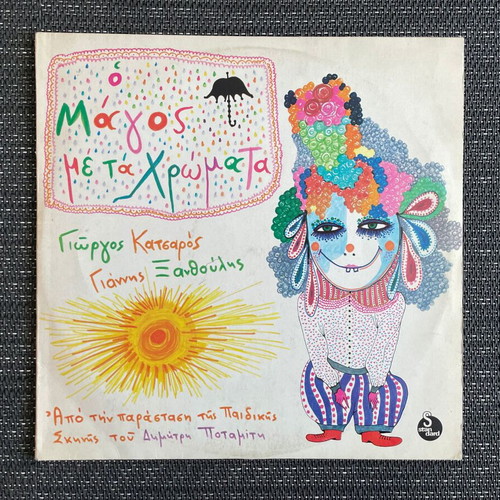 ὁ
Μάγος
μὲ τὰ Χρώματα
Γιῶργος Κατσαρός
Γιάννης Ξανθούλης
Ἀπὸ τὴν παράσταση τῆς Παιδικῆς
Σκηνῆς τοῦ Δημήτρη Ποταμίτη
S
stan
dard